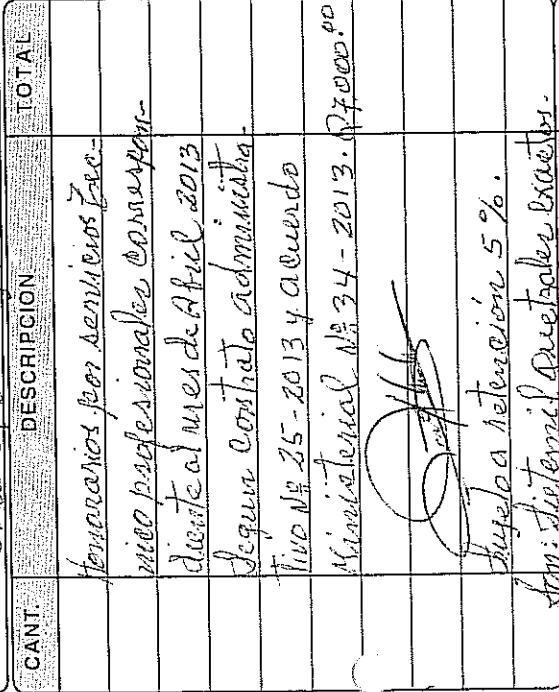 CANT. DESCRIPCION TOTAL
Honorarios por servicios Tec-
nico profesionales correspon-
diente al mes de Abril 2013
Segun contrato administra-
tivo Nº 25-2013 y acuerdo
Ministerial Nº 34-2013. Q7,000.00
Sujeto a retención 5%.
Son: Siete mil Quetzales exactos.